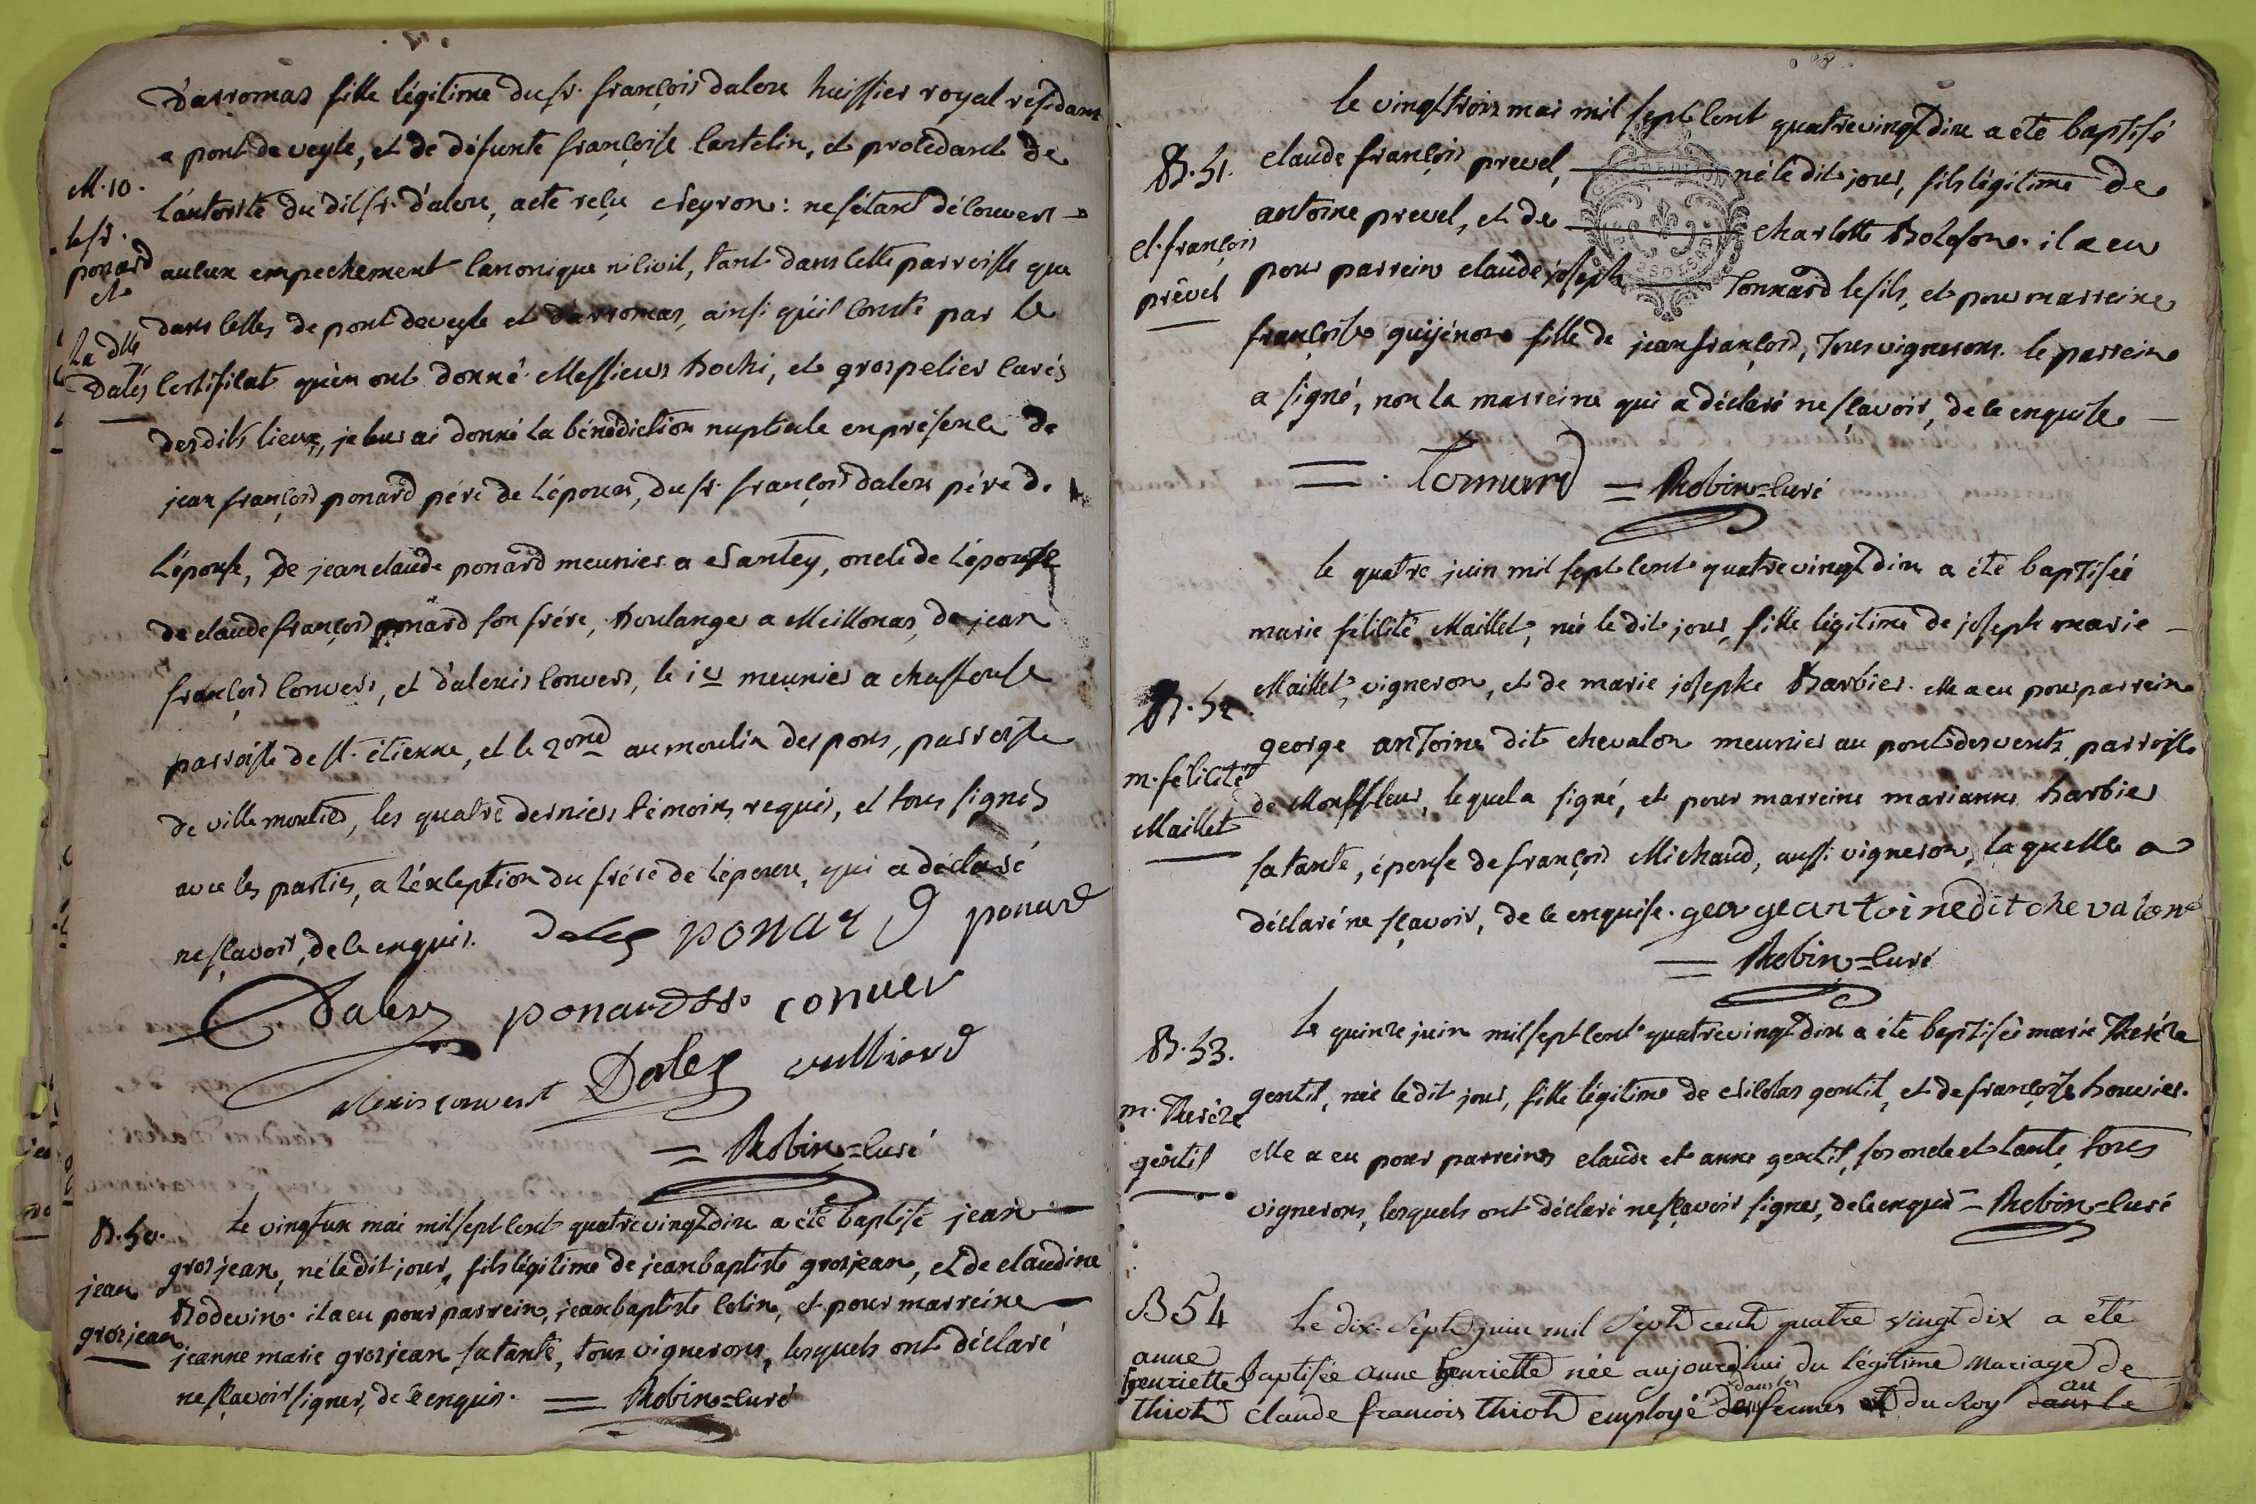 d'arromas fille légitime du sr. françois dalex huissier royal résidant
a pont de veyle, et de défunte françoise Cantelin, et procédant de
M. 10.
l'autorité du dit sr. d'alex, acte reçu Neyron : ne s'étant découvert
le sr.
ponard
et
La dlle
Dalés
aucun empechement canonique ni civil, tant dans cette parroisse que
dans celles de pont deveyle et d'arromas, ainsi qu'il conste par le
Certificat qu'en ont donné Messieurs Bochi, et grospelier curés
desdits lieux, je leur ai donné la bénédiction nuptiale en présence de
jean françois ponard pére de l'époux, du sr. françois dalex pére de
L'épouse, de jean claude ponard meunier a Santey, oncle de L'épouse
de claude françois ponard son frére, boulanger a Meillonas, de jean
françois Convers, et d'alexis Convers, le 1er meunier a chassouse
parroisse de st. étienne, et le 2ond au moulin des pons, parroisse
de villemoutier, les quatre derniers témoins requis, et tous signés
avec les parties, a l'éxception du frére de l'époux, qui a déclaré
ne sçavoir, de ce enquis. Dalex ponard ponard
Dalex ponard convers
alexis convert Dalex vulliard
= Robin = Curé
B. 50.
jean
grosjean
Le vingt un mai mil sept cent quatre vingt dix a été baptisé jean
grosjean, né le dit jour, fils légitime de jean baptiste grosjean, et de claudine
Bodevin. il a eu pour parrein, jean baptiste Colin, et pour marreine
jeanne marie grosjean sa tante, tous vignerons, lesquels ont déclaré
ne sçavoir signer, de ce enquis. = Robin = curé
le vingt trois mai mil sept cent quatre vingt dix a été baptisé
B. 51.
cl. françois
prevel
claude françois prevel, né le dit jour, fils légitime de
antoine prevel, et de charlotte Bolofon. il a eu
pour parrein claude joseph Tonnard le fils, et pour marreine
françoise guijénon fille de jean françois, tous vignerons. le parrein
a signé, non la marreine qui a déclaré ne sçavoir, de ce enquise
= . Tonnard = Robin = Curé
le quatre juin mil sept cent quatre vingt dix a été baptisée
B. 52.
m. félicité
Maillet
marie félicité Maillet, née le dit jour, fille légitime de joseph marie
Maillet, vigneron, et de marie josephe Barbier. elle a eu pour parrein
george antoine dit chevalon meunier au pont des vents parroisse
de Montfleur, lequel a signé, et pour marreine marianne barbier
sa tante, épouse de françois Michaud, aussi vigneron, laquelle a
déclaré ne sçavoir, de ce enquise. george antoine dit chevalon
= Robin = Curé
B. 53.
m. Therése
gentil
Le quinze juin mil sept cent quatre vingt dix a été baptisée marie Therése
gentil, née le dit jour, fille légitime de Nicolas gentil, et de françoise bouvier.
elle a eu pour parreins claude et anne gentil, ses oncle et tante, tous
vignerons, lesquels ont déclaré ne sçavoir signer, de ce enquis = Robin = Curé
B 54
anne
henriette
thiot
Le dix-sept juin mil sept cent quatre vingt dix a été
baptisée anne henriette née aujourd'hui du légitime mariage de
claude francois thiot employé dans les fermes du Roy au